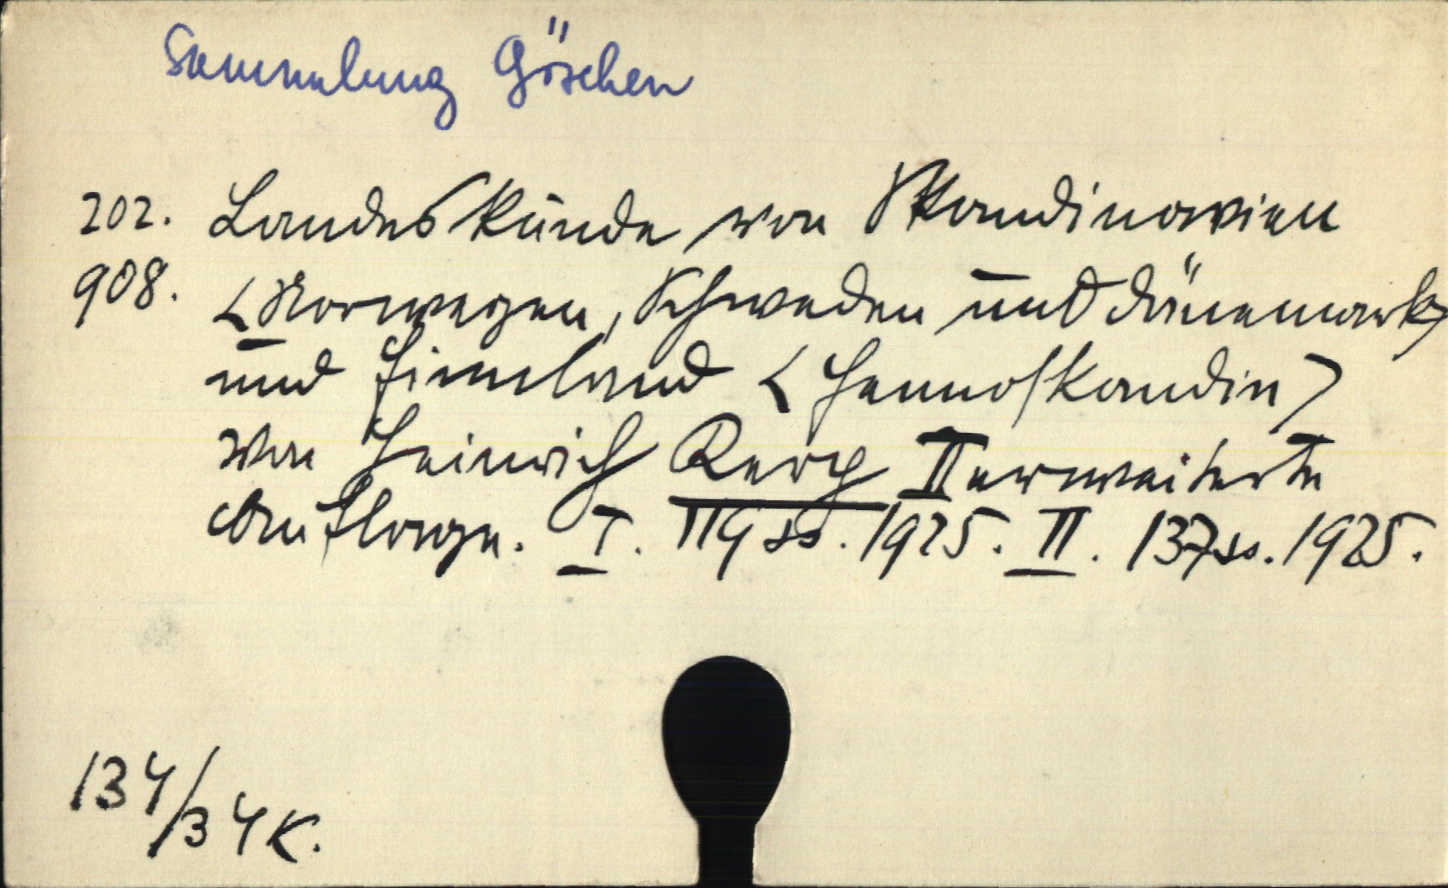 Sammlung Göschen
202. Landeskunde von Skandinavien
908. <Norwegen, Schweden und Dänemark>
und Finnland <Fennoskandin>
von Heinrich Kerp II erweiterte
Auflage. I. 119 ss. 1925. II. 137 ss. 1925.
134/34K.